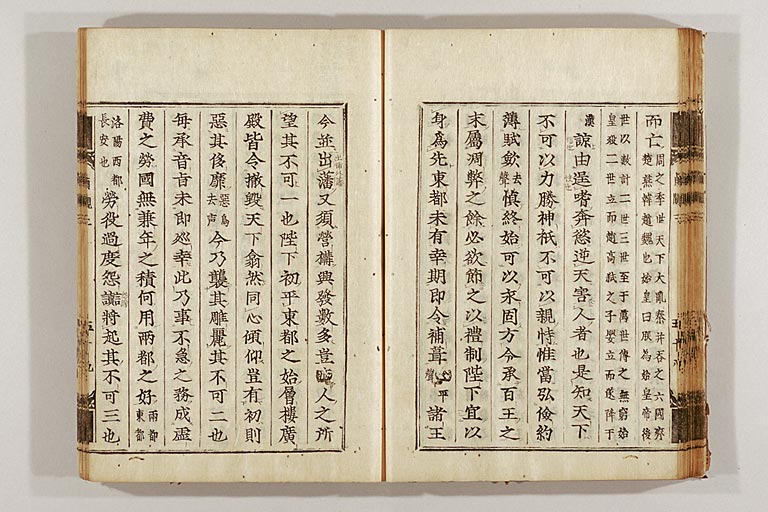 而亡周之季世天下大亂秦并吞之六國齊
楚燕韓趙魏也始皇曰朕為始皇帝後
世以數計二世三世至于萬世傳之無窮始
皇殺二世立而趙高弑之子嬰立而遂降于
漢諒由逞嗜奔慾逆天害人者也是知天下
不可以力勝神祇不可以親恃惟當弘儉約
薄賦歛去聲慎終始可以永固方今承百王之
末屬凋弊之餘必欲節之以禮制陛下宜以
身爲先東都未有幸期即令補葺平聲諸王
今並出藩又須營搆興發數多豈人之所
望其不可一也陛下初平東都之始層樓廣
殿皆令撤毀天下翕然同心傾仰豈有初則
惡其侈靡惡烏去声今乃襲其雕麗其不可二也
每承音旨未即巡幸此乃事不急之務成虛
費之勞國無兼年之積何用兩都之好兩都東都
洛陽西都長安也勞役過度怨讟將起其不可三也